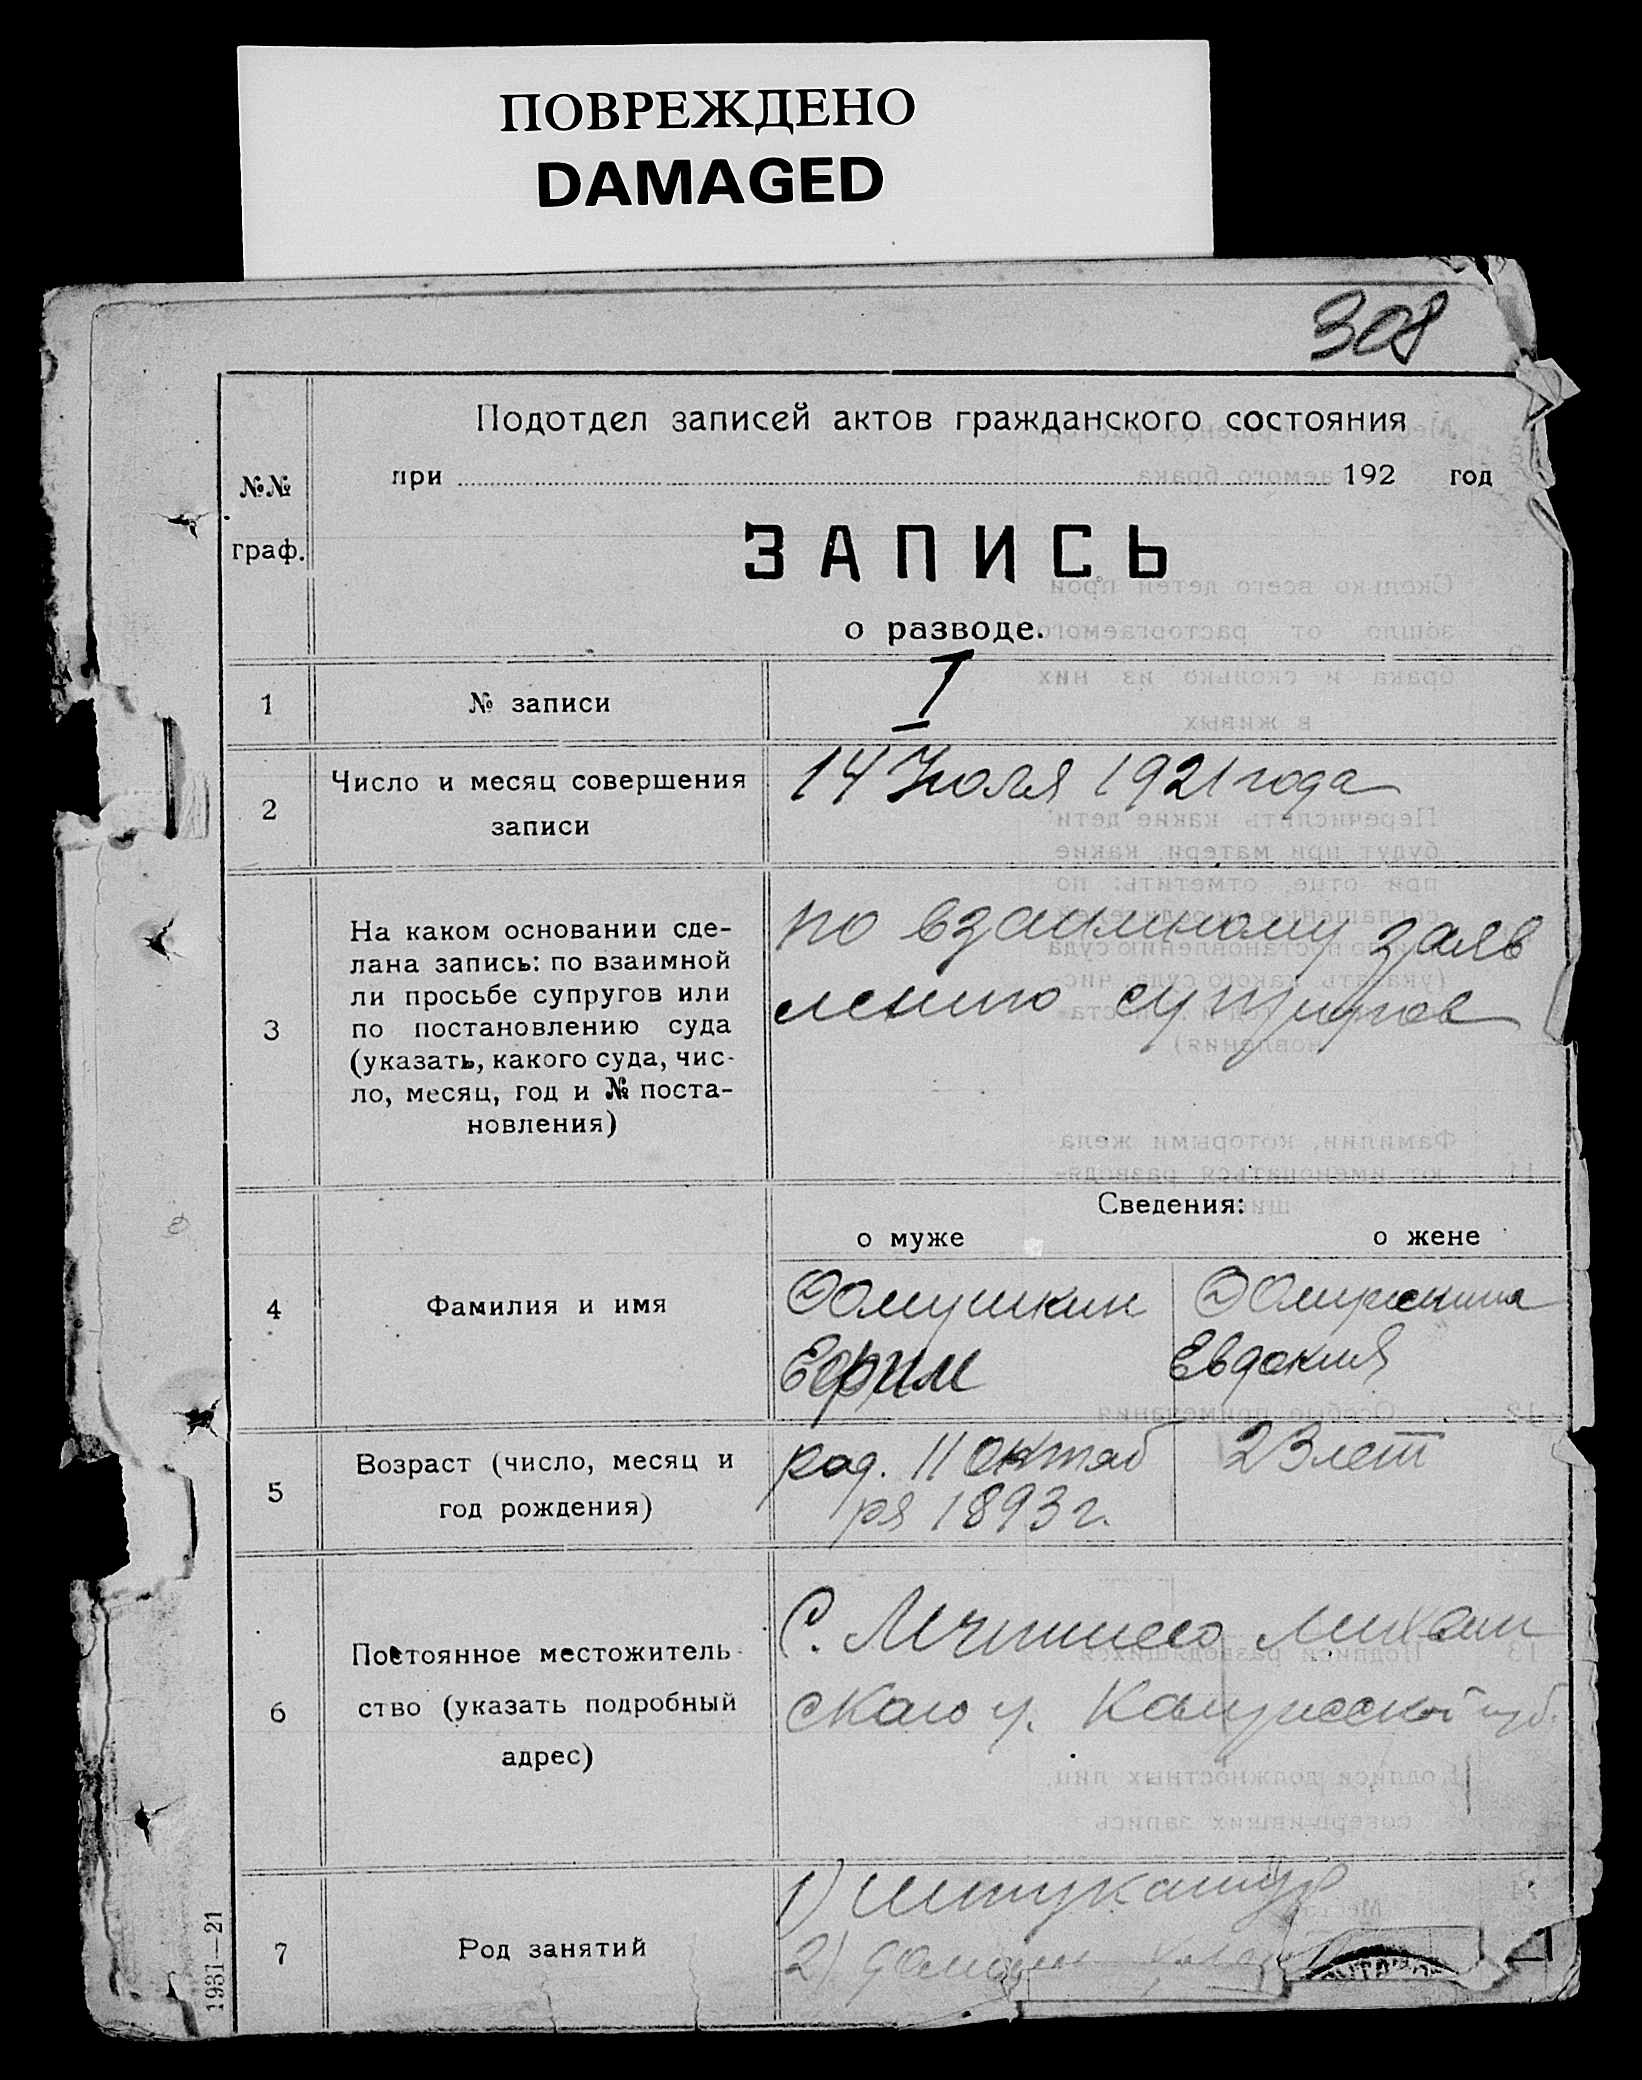 ПОВРЕЖДЕНО
DAMAGED
308
Подотдел записей актов гражданского состояния
при 192 год
№№
граф.
ЗАПИСЬ
о разводе.
1 № записи 1
2 Число и месяц совершения 14 Июля 1921 года
записи
3 На каком основании сде- по взаимному заяв
лана запись: по взаимной лению супругов
ли просьбе супругов или
по постановлению суда
(указать, какого суда, чис-
ло, месяц, год и № поста-
новления)
Сведения:
о муже о жене
4 Фамилия и имя Фомушкин Фомушкина
Ефрим Евдокия
5 Возраст (число, месяц и род. 11 октяб 23 лет
год рождения) ря 1893 г.
6 Постоянное местожитель- С.
ство (указать подробный ского у. Калужской губ.
адрес)
7 Род занятий 1) Штукатур
2)
1931—21